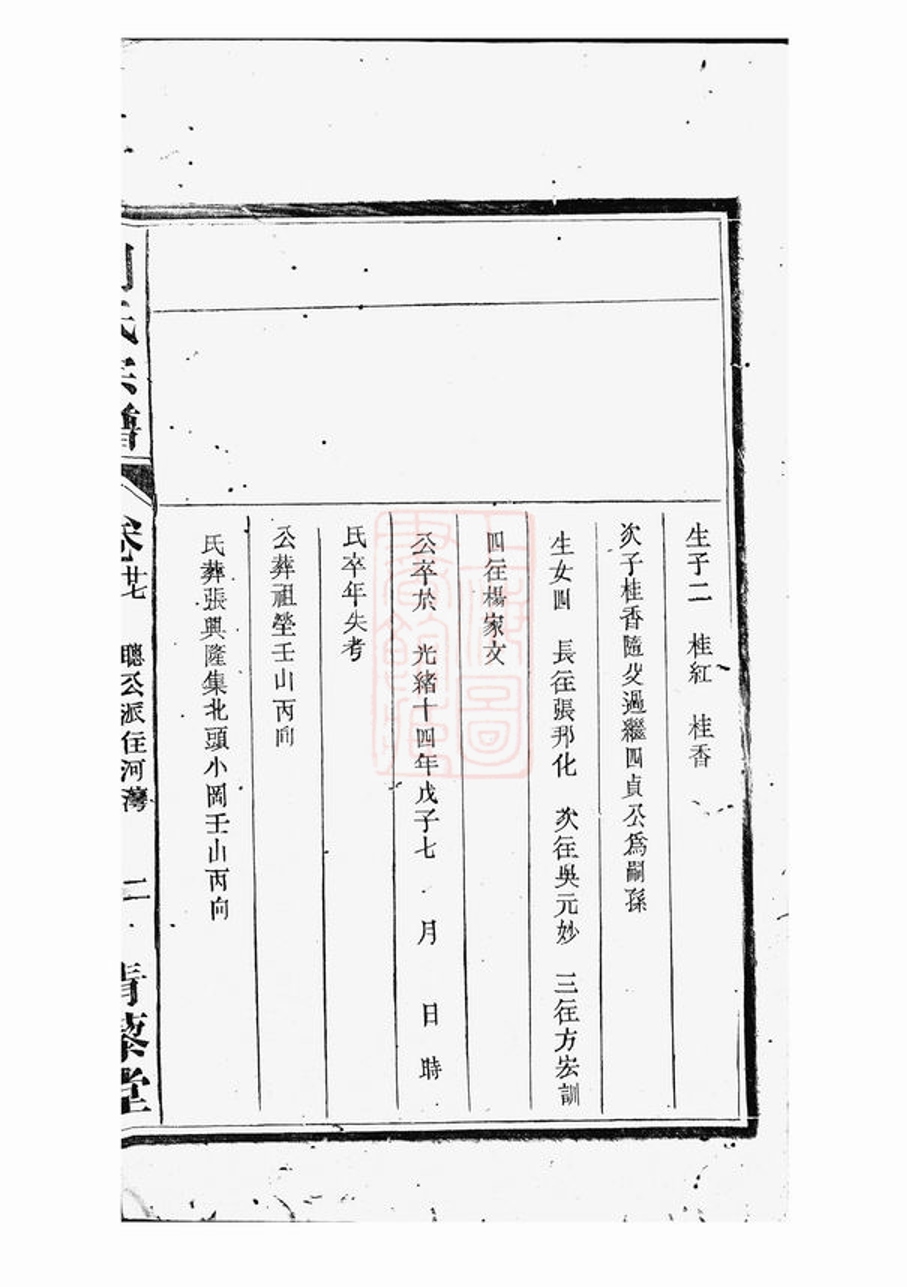 生子二　桂紅　桂香
次子桂香隨父過繼四貞公為嗣孫
生女四　長往張邦化　次往吳元妙　三往方宏訓
四往楊家文
公卒於　光緒十四年戊子七　月　日　時
氏卒年失考
公葬祖塋壬山丙向
氏葬張興隆集北頭小岡壬山丙向
氏宗譜
卷廿七　聰公派住河灣　二　青藜堂